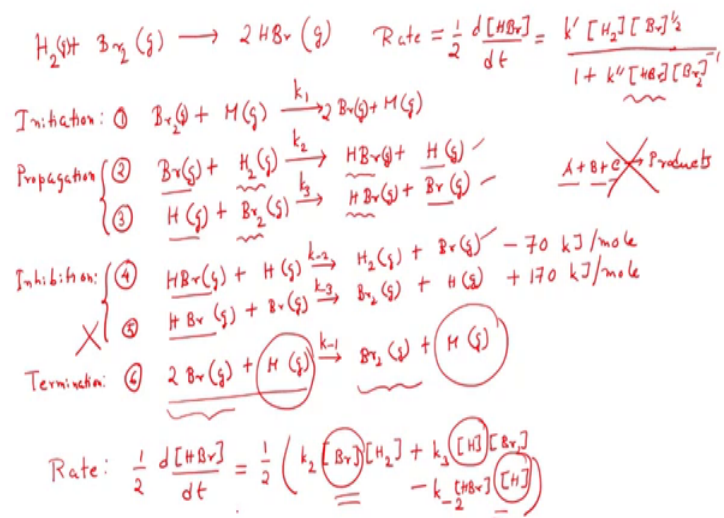 H₂(g) + Br₂(g) ⟶ 2HBr(g) Rate = 1/2 d[HBr]/dt = k'[H₂][Br₂]^1/2 / 1 + k''[HBr][Br₂]⁻¹
Initiation: ① Br₂(g) + M(g) —k₁→ 2Br(g) + M(g)
Propagation { ② Br(g) + H₂(g) —k₂→ HBr(g) + H(g)
③ H(g) + Br₂(g) —k₃→ HBr(g) + Br(g)
A + B + C → Products
Inhibition: { ④ HBr(g) + H(g) —k₋₂→ H₂(g) + Br(g) - 70 kJ/mole
X ⑤ HBr(g) + Br(g) —k₋₃→ Br₂(g) + H(g) + 170 kJ/mole
Termination: ⑥ 2Br(g) + M(g) —k₋₁→ Br₂(g) + M(g)
Rate: 1/2 d[HBr]/dt = 1/2 (k₂[Br][H₂] + k₃[H][Br₂]
- k₋₂[HBr][H])